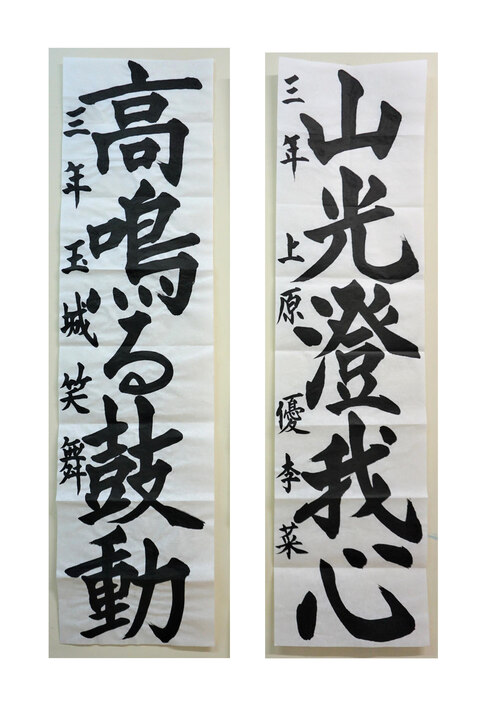 山光澄我心
三年 上原優李菜
高鳴る鼓動
三年 玉城笑舞